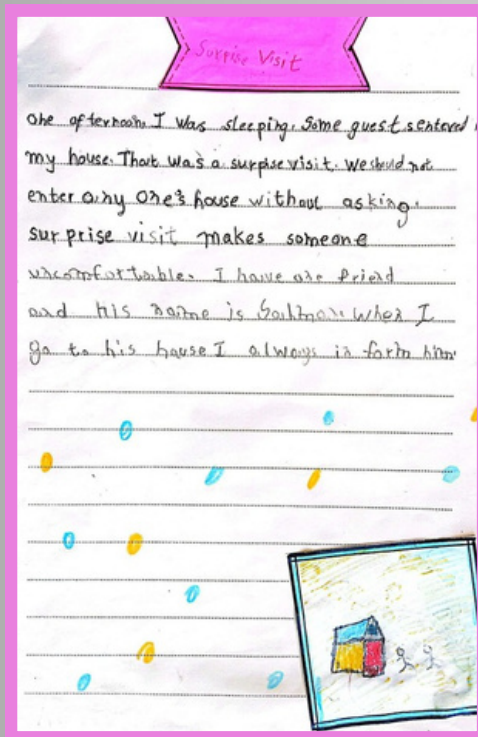 Surpise Visit
one afternoon, I was sleeping. Some guest sentered
my house. That was a surpise visit. We should not
enter any one's house without asking.
surprise visit makes someone
uncomfortable. I have one friend
and his name is Salman. When I
go to his house I always in form him.